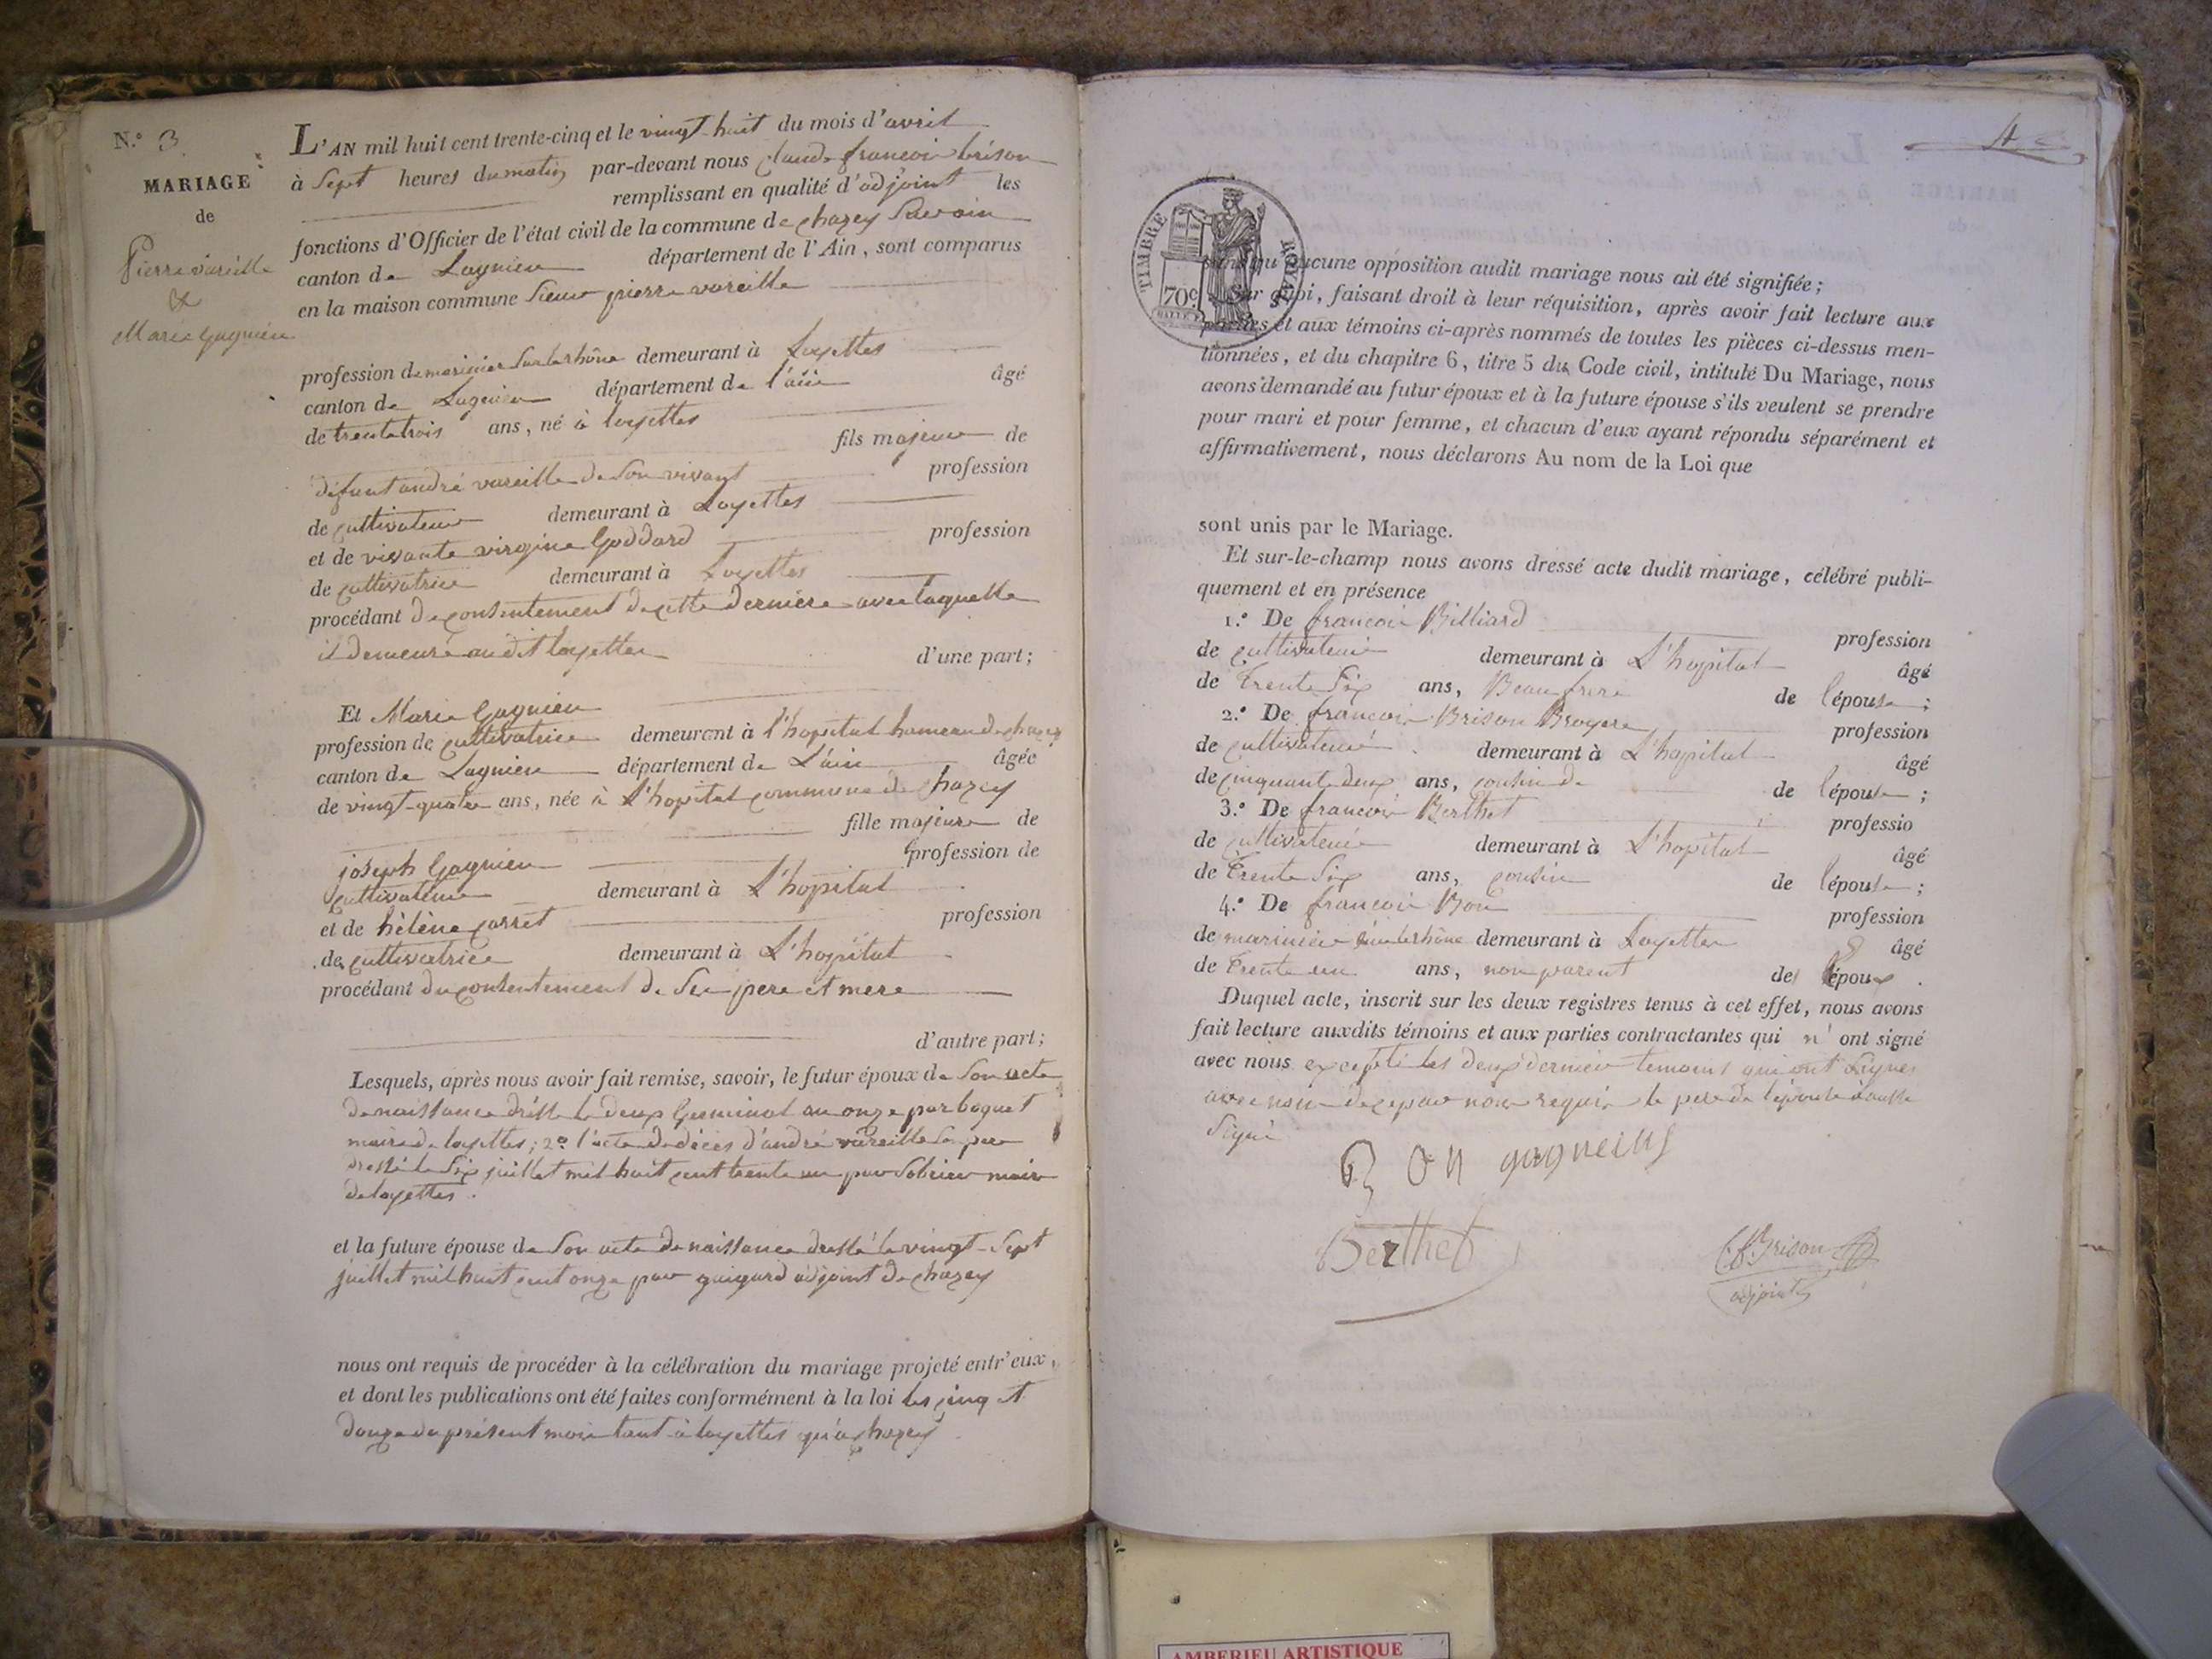 N.º 3
MARIAGE
de
Pierre vareille
&
Marie Gagnieu
L'AN mil huit cent trente-cinq et le vingt-huit du mois d'avril
à Sept heures du matin par-devant nous Claude francois brison
remplissant en qualité d'adjoint les
fonctions d'Officier de l'état civil de la commune de chazey
canton de Lagnieu département de l'Ain, sont comparus
en la maison commune Sieur pierre vareille
profession de marinier Sur le rhône demeurant à Loyettes
canton de Lagnieu département de l'ain âgé
de trente trois ans, né à loyettes
fils majeur de
défunt andré vareille de Son vivant profession
de cultivateur demeurant à Loyettes
et de vivante virgine Goddard profession
de cultivatrice demeurant à Loyettes
procédant de consentement de cette dernière avec laquelle
il demeure au dit loyettes d'une part;
Et Marie Gagnieu
profession de cultivatrice demeurant à l'hopital hameau de chazey
canton de Lagnieu département de L'ain âgée
de vingt-quatre ans, née à L'hopital commune de chazey
fille majeure de
joseph Gagnieu profession de
cultivateur demeurant à L'hopital
et de hélène carret profession
de cultivatrice demeurant à L'hopital
procédant du consentement de Ses pere et mere
d'autre part;
Lesquels, après nous avoir fait remise, savoir, le futur époux de Son acte
de naissance dressé le deux Germinal an onze par boguet
maire de loyettes; 2º l'acte de décès d'andré vareille Son pere
dressé le Six juillet mil huit cent trente un par maire
de loyettes.
et la future épouse de Son acte de naissance dressé le vingt-Sept
juillet mil huit cent onze par guigard adjoint de chazey
nous ont requis de procéder à la célébration du mariage projeté entr'eux,
et dont les publications ont été faites conformément à la loi les cinq et
douze du présent mois tant à loyettes qu'à chazey
4
TIMBRE ROYAL
70c
sans qu'aucune opposition audit mariage nous ait été signifiée;
Sur quoi, faisant droit à leur réquisition, après avoir fait lecture aux
parties et aux témoins ci-après nommés de toutes les pièces ci-dessus men-
tionnées, et du chapitre 6, titre 5 du Code civil, intitulé Du Mariage, nous
avons demandé au futur époux et à la future épouse s'ils veulent se prendre
pour mari et pour femme, et chacun d'eux ayant répondu séparément et
affirmativement, nous déclarons Au nom de la Loi que
sont unis par le Mariage.
Et sur-le-champ nous avons dressé acte dudit mariage, célébré publi-
quement et en présence
1.º De francois Billiard profession
de cultivateur demeurant à L'hopital âgé
de Trente Six ans, Beau frere de l'épouse;
2.º De francois Brison Bruyere profession
de cultivateur demeurant à L'hopital âgé
de cinquante deux ans, cousin de de l'épouse;
3.º De francois Berthet professio
de cultivateur demeurant à L'hopital âgé
de Trente Six ans, cousin de l'épouse;
4.º De francois Bon profession
de marinier Sur le rhône demeurant à Loyettes âgé
de Trente un ans, non parent de l'époux.
Duquel acte, inscrit sur les deux registres tenus à cet effet, nous avons
fait lecture auxdits témoins et aux parties contractantes qui n'ont signé
avec nous excepté les deux dernier temoins qui ont Signer
avec nous de ce par nous requis le pere de l'épouse aussi
Signé
BON gagneius
Berthet
C f Brison
adjoint
AMBERIEU ARTISTIQUE